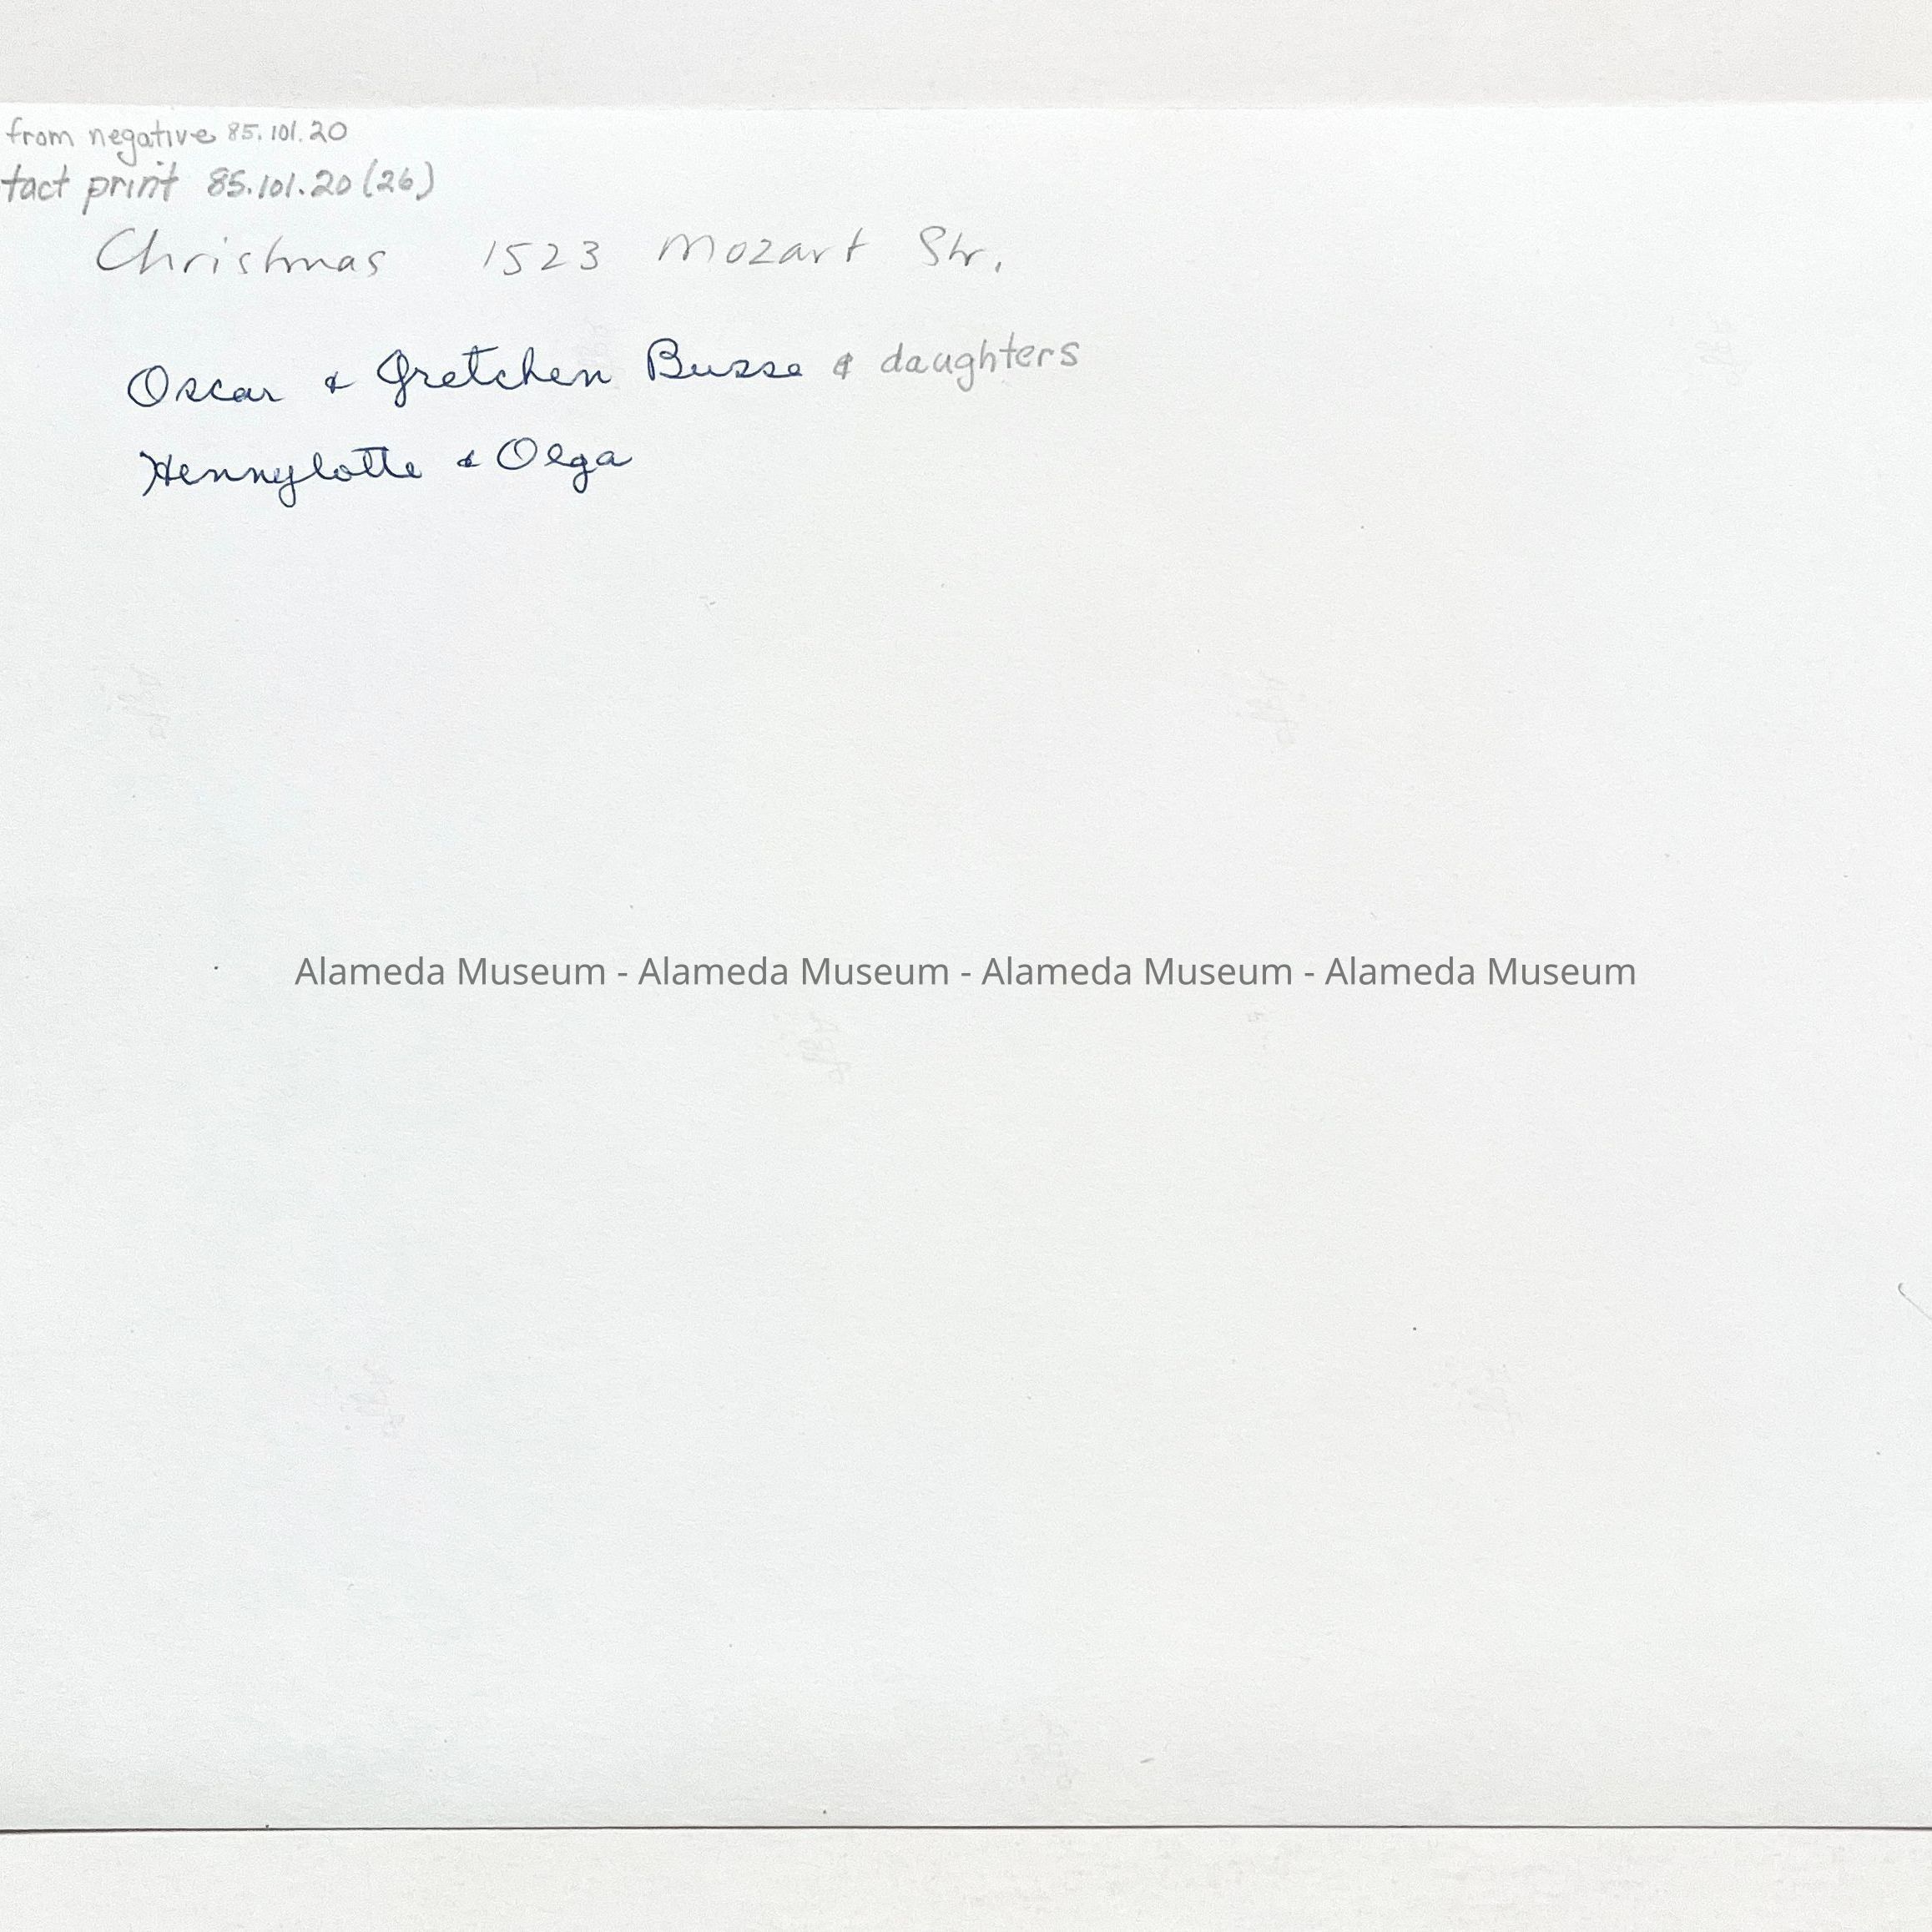 from negative 85.101.20
tact print 85.101.20 (26)
Christmas 1523 Mozart Str.
Oscar & Gretchen Busse & daughters
Hennylotte & Olga
Alameda Museum - Alameda Museum - Alameda Museum - Alameda Museum